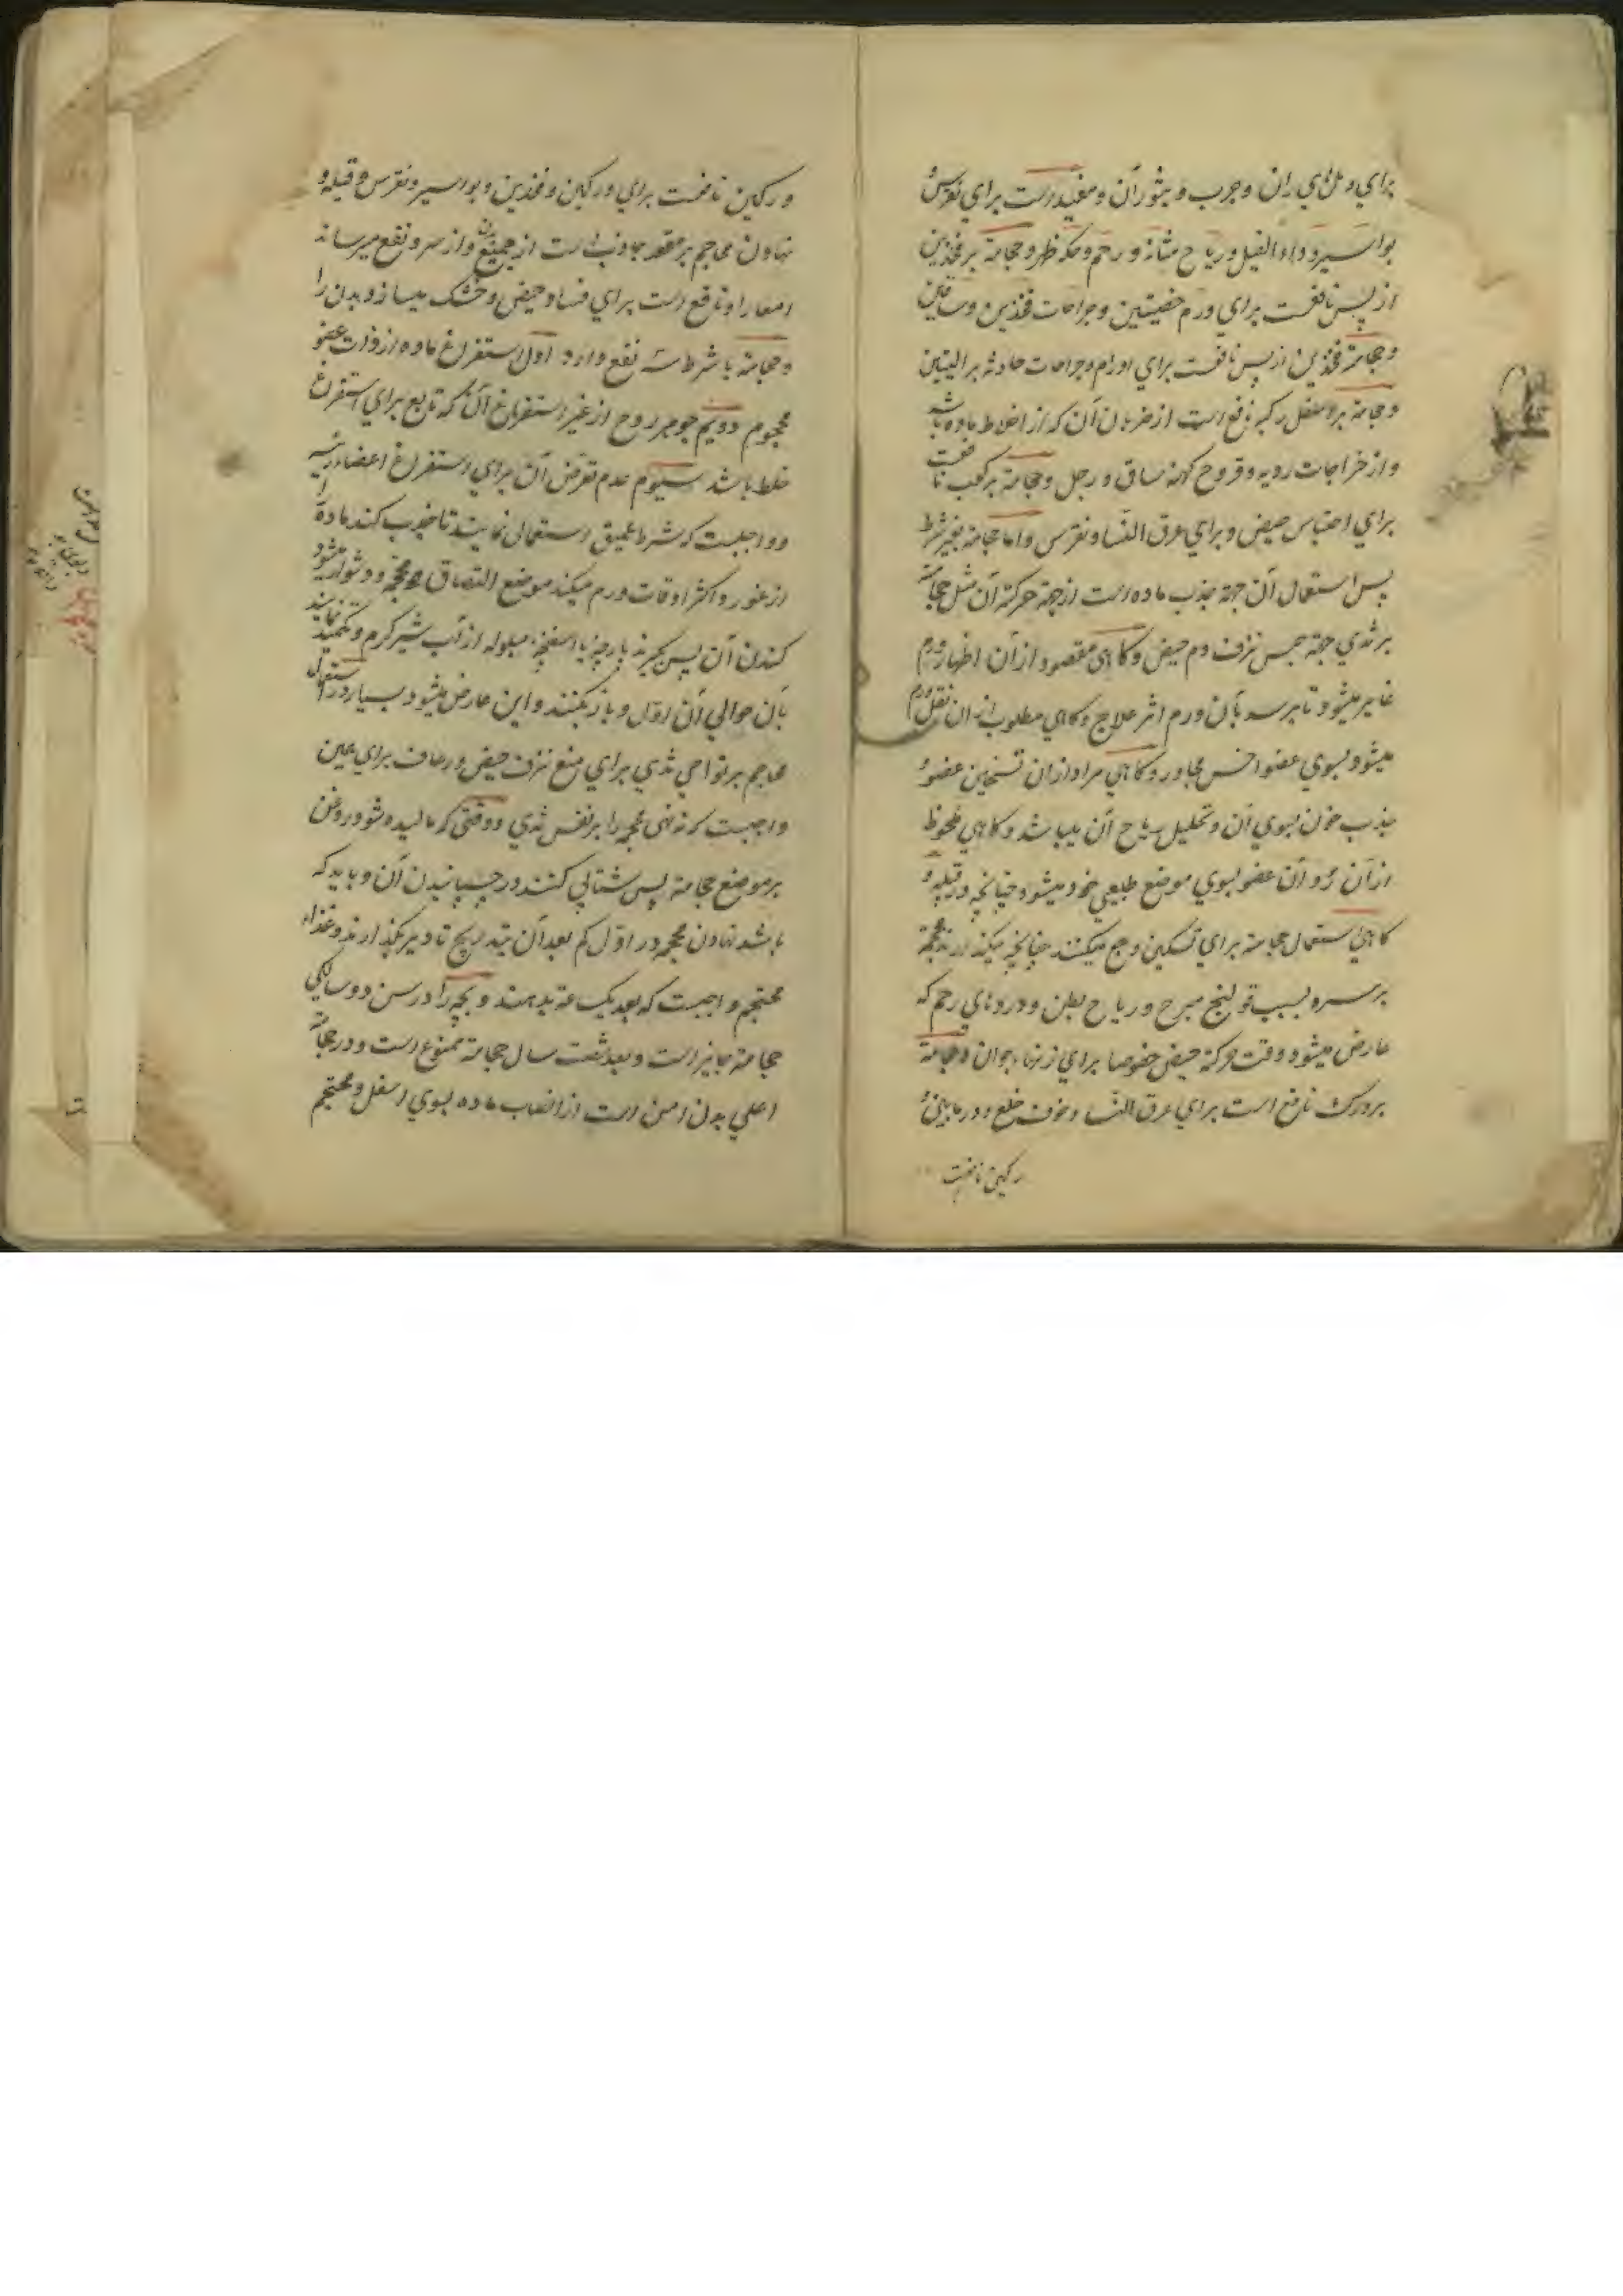 برای دملهای ران و جرب و بثور آن و مفید است برای نقرس و
بواسیر و داء الفیل و ریاح مثانه و رحم و حکه ظهر و حجامة بر فخذین
از پس نافعست برای ورم خصیتین و جراحات فخذین و ساقین
و حجامة فخذین از پس نافعست برای اورام و جراحات حادثه بر الیتین
و حجامة بر اسفل رکبه نافع است از ضربان آن که از اخلاط حاده باشد
و از خراجات ردیه و قروح کهنه ساق و رجل و حجامة بر کعب نافعست
برای احتباس حیض و برای عرق النسا و نقرس و اما حجامة بغیر شرط
پس استعمال آن جهة جذب ماده است از جهة حرکة آن مثل حجامة
بر ثدی جهة حبس نزف دم حیض و گاهی مقصود از آن اظهار ورم
غایر میشود تا برسد بآن ورم اثر علاج و گاهی مطلوب از آن نقل ورم
میشود بسوی عضو اخس مجاور و گاهی مراد از آن تسخین عضو و
جذب خون بسوی آن و تحلیل ریاح آن میباشد و گاهی ملحوظ
از آن رد آن عضو بسوی موضع طبیعی خود میشود چنانچه در قیله و
گاهی استعمال حجامة برای تسکین وجع میکنند چنانچه میگذارند محجمه
بر سره بسبب قولنج مبرح و ریاح بطن و دردهای رحم که
عارض میشود وقت حرکة حیض خصوصا برای زنهاء جوان و حجامة
بر ورک نافع است برای عرق النسا و خوف خلع و در مابین
رکین نافعست
ورکین نافعست برای ورکین و فخذین و بواسیر و نقرس و قیله و
نهادن محاجم بر مقعد جاذب است از جمیع بدن و از سر و نفع میرساند
امعا را و نافع است برای فساد حیض و خشک میسازد بدن را
و حجامة با شرط سه نفع دارد اول استفراغ ماده از ذات عضو
محجوم دویم جوهر روح از غیر استفراغ آن که تابع برای استفراغ
خلط باشد سیوم عدم تعرض آن برای استفراغ اعضاء رئیسه
و واجبست که شرط عمیق استعمال نمایند تا جذب کند ماده را
از غور و اکثر اوقات ورم میکند موضع التصاق محجمه و دشوار میشود
کندن آن پس بگیرند پارچه یا اسفنجه مبلوله از آب شیر گرم و تکمید نمایند
بآن حوالی آن اول و باز بکنند و این عارض میشود بسیار در استعمال
محاجم بر نواحی ثدی برای منع نزف حیض و رعاف برای همین
واجبست که ننهی محجمه را بر نفس ثدی و وقتی که مالیده شود روغن
بر موضع حجامة پس شتابی کنند در چسپانیدن آن و باید که
باشد نهادن محجمه در اول کم بعد آن بتدریج تا دیر بگذارند و غذاء
محتجم واجبست که بعد یک ساعة بدهند و بچه را در سن دو سالگی
حجامة جایز است و بعد شصت سال حجامة ممنوع است و در حجامة
اعلی بدن امن است از انصباب ماده بسوی اسفل و محتجم